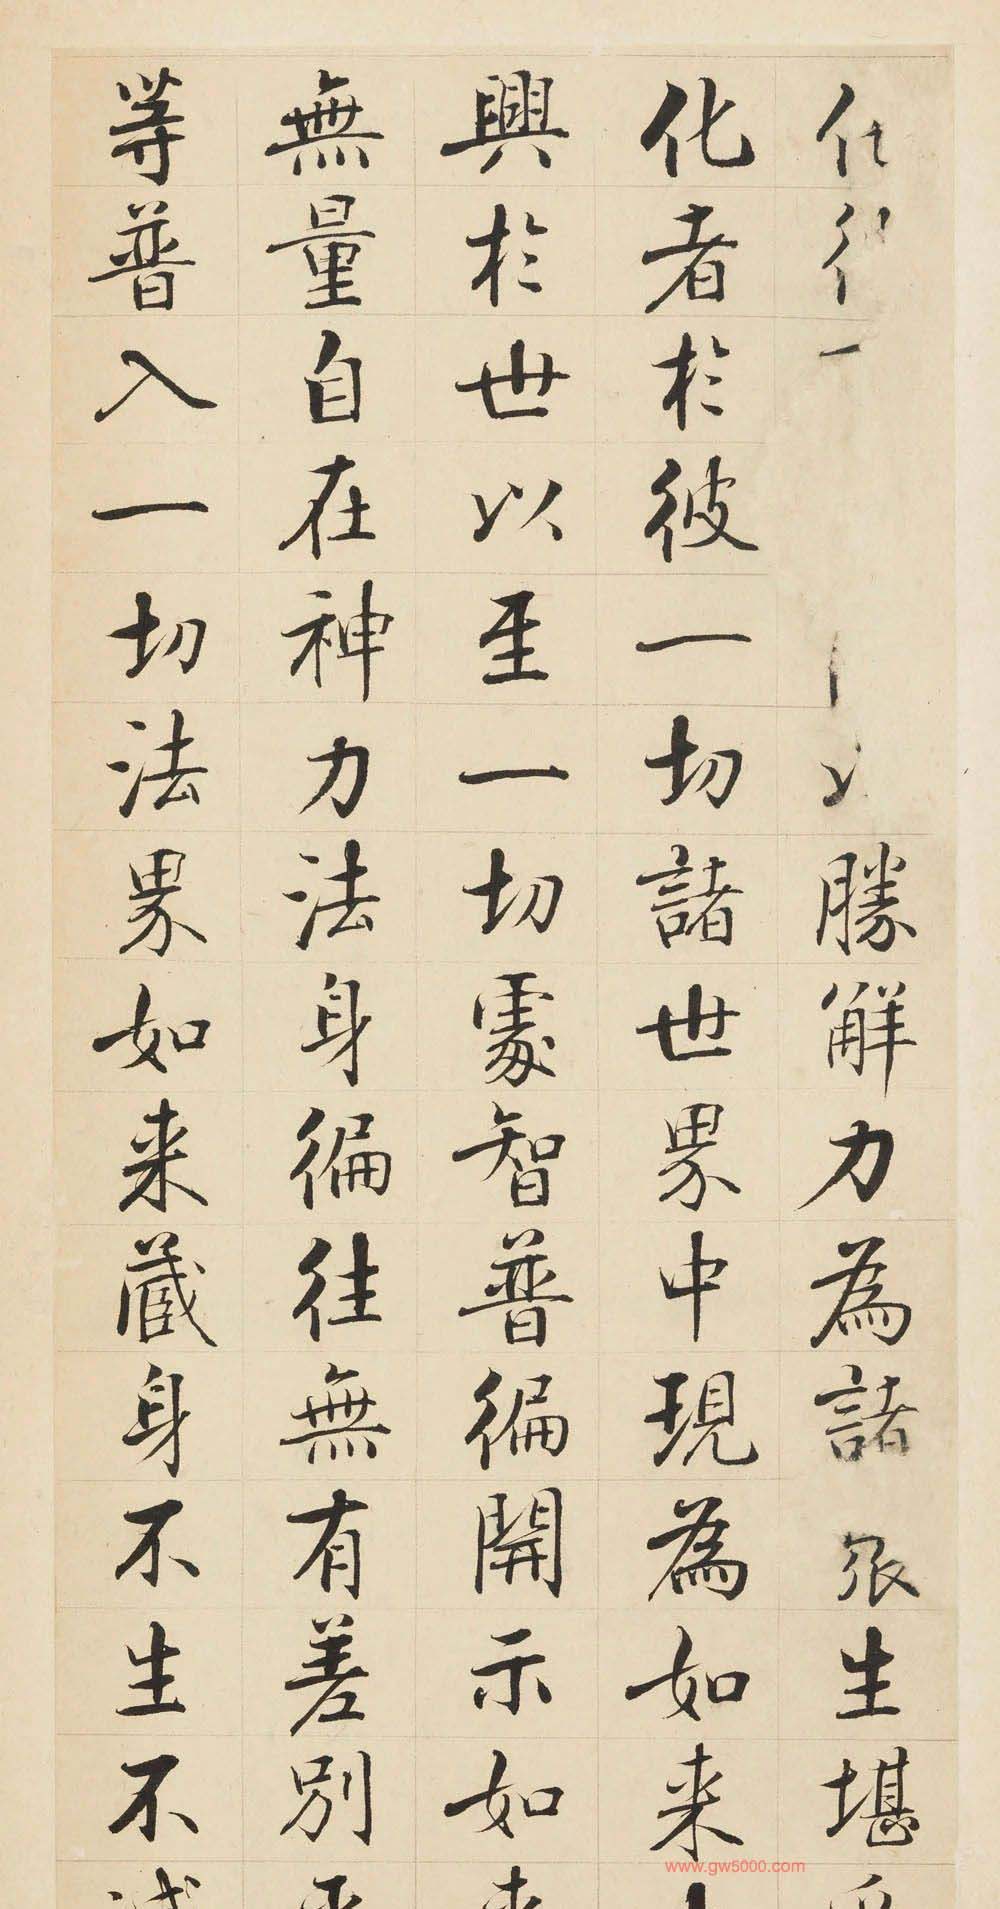 勝解力為諸眾生堪
化者於彼一切諸世界中現為如来
興於世以至一切處智普徧開示如
無量自在神力法身徧往無有差别
等普入一切法界如来藏身不生不
www.gw5000.com